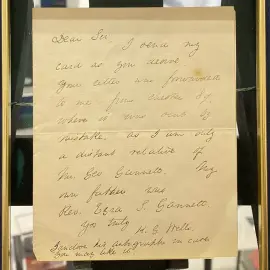 Dear Sir
I send my
card as you desire.
Your letter was forwarded
to me from
where it was sent by
mistake, as I am only
a distant relative of
Mr Geo Gannett. My
own father was
Rev. Ezra S. Gannett.
Yrs truly
W. C.
I enclose his autographs in case
you may like it.